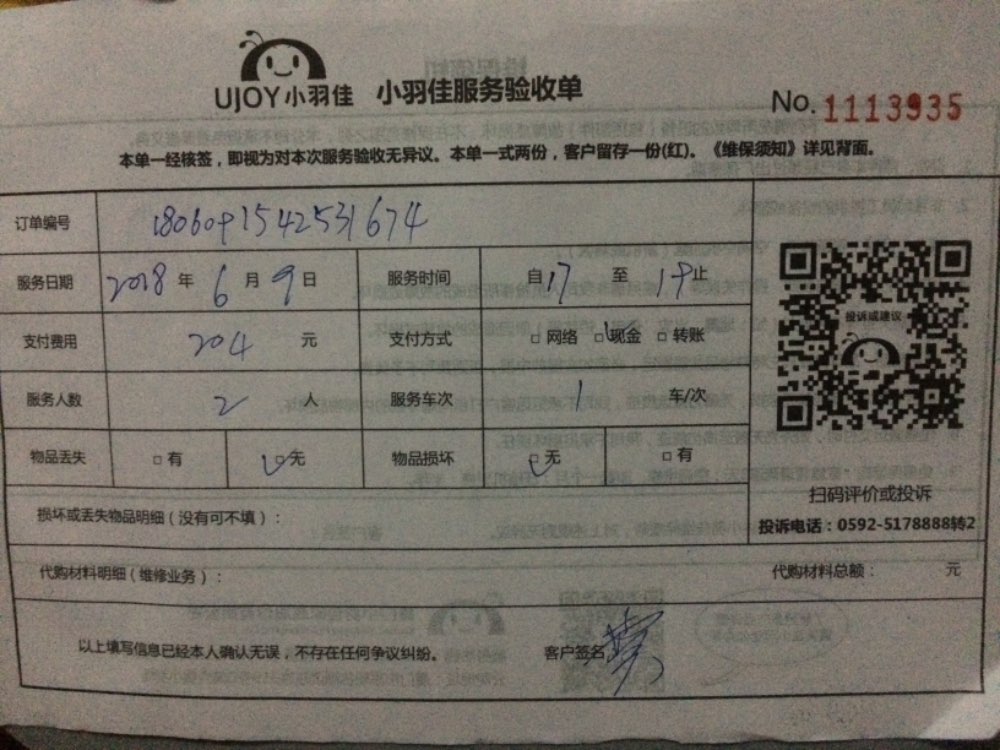 UJOY小羽佳 小羽佳服务验收单
No. 1113935
本单一经核签，即视为对本次服务验收无异议。本单一式两份，客户留存一份(红)。《维保须知》详见背面。
订单编号 180609154253​1674
服务日期 2018 年 6 月 9 日 服务时间 自 17 至 19 止
支付费用 204 元 支付方式 □ 网络 □ 现金 □ 转账
服务人数 2 人 服务车次 1 车/次
物品丢失 □ 有 □ 无 物品损坏 □ 无 □ 有
投诉或建议
扫码评价或投诉
投诉电话：0592-5178888转2
损坏或丢失物品明细（没有可不填）：
代购材料明细（维修业务）： 代购材料总额： 元
以上填写信息已经本人确认无误，不存在任何争议纠纷。 客户签名